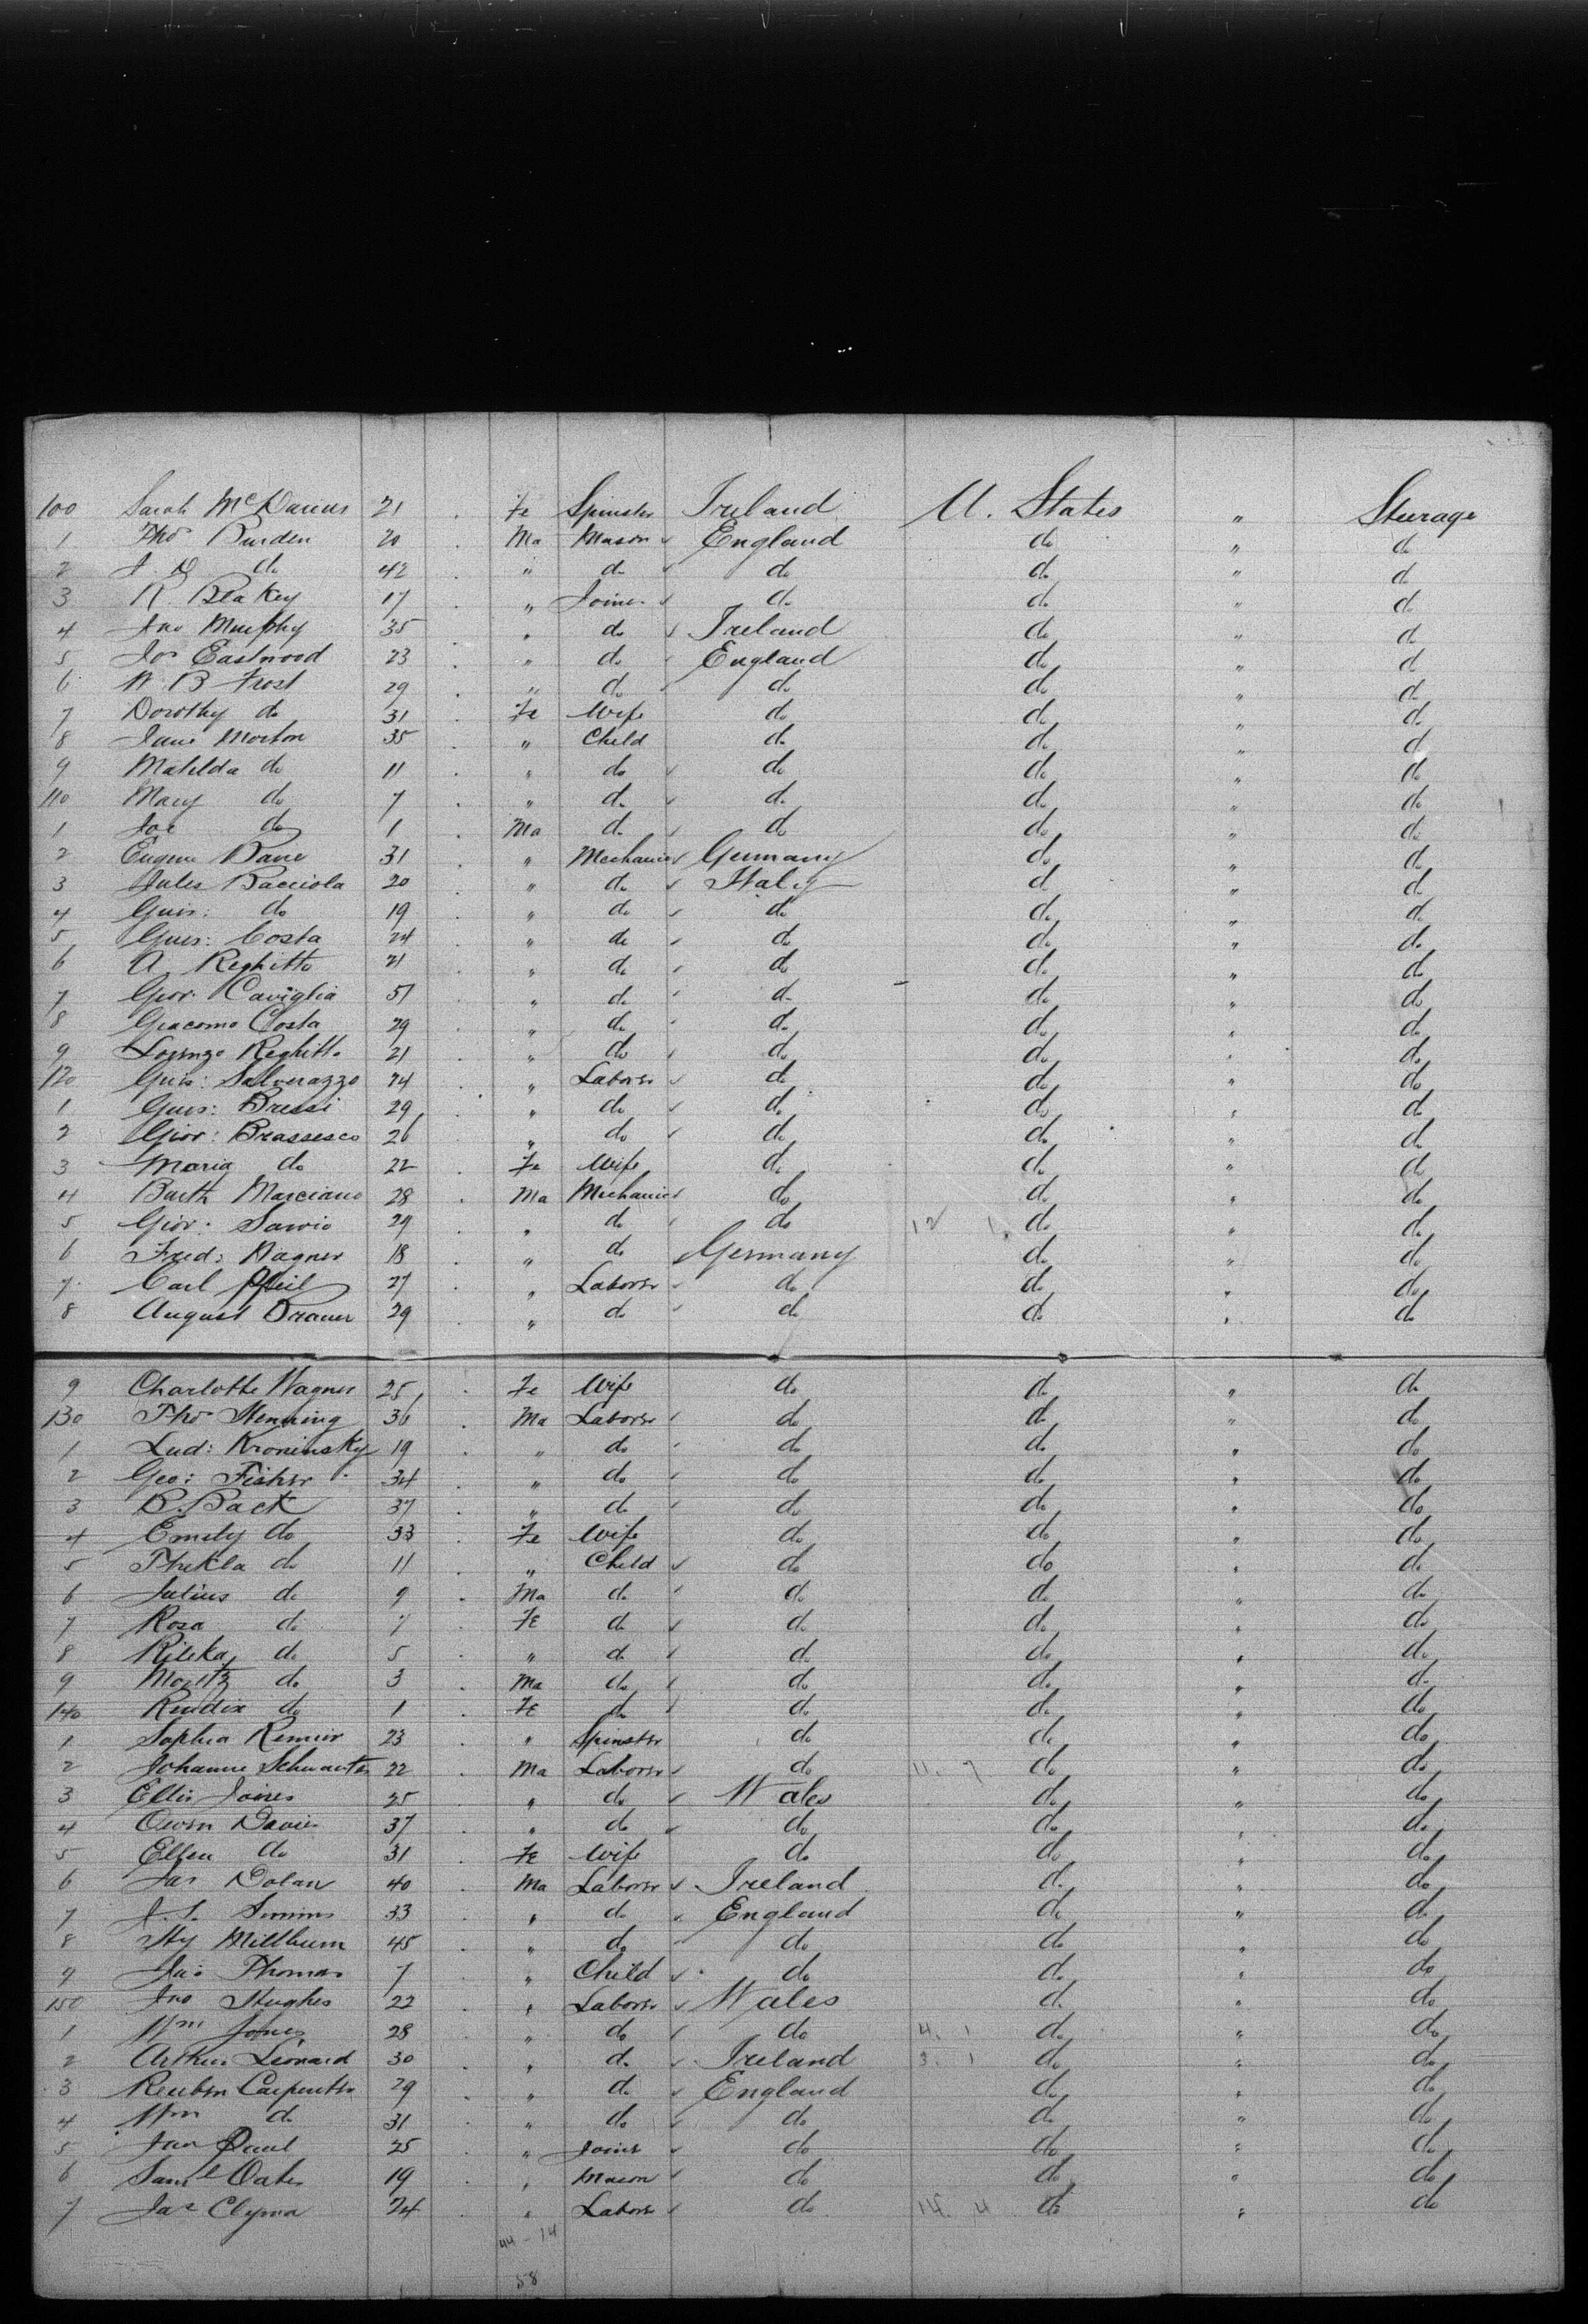 100 Sarah McDanius 21 . Fe Spinster Ireland U. States " Steerage
1 Thos Burden 20 . Ma Mason England do " do
2 J. D do 42 . " do do do " do
3 R. Blakey 17 . " Joiner do do " do
4 Jno Murphy 35 . " do Ireland do " do
5 Jos Eastwood 23 . " do England do " do
6 W B Frost 29 . " do do do " do
7 Dorothy do 31 . Fe Wife do do " do
8 Jane Morton 35 . " Child do do " do
9 Matilda do 11 . " do do do " do
110 Mary do 7 . " do do do " do
1 Joe do 1 . Ma do do do " do
2 Eugene Bane 31 . " Mechanic Germany do " do
3 Jules Bacciola 20 . " do Italy do " do
4 Guis: do 19 . " do do do " do
5 Guis: Costa 24 . " do do do " do
6 A Reghitto 21 . " do do do " do
7 Gior. Caviglia 51 . " do do do " do
8 Giacomo Costa 29 . " do do do " do
9 Lorenzo Reghitto 21 . " do do do " do
120 Guis: Salverazzo 24 . " Laborer do do " do
1 Guis: Bressi 29 . " do do do " do
2 Gior: Brassesco 26 . " do do do " do
3 Maria do 22 . Fe Wife do do " do
4 Barth Marciano 28 . Ma Mechanic do do " do
5 Gior. Savio 29 . " do do 12 1. do " do
6 Fred: Wagner 18 . " do Germany do " do
7 Carl Pfeil 27 . " Laborer do do " do
8 August Brauer 29 . " do do do " do
9 Charlotte Wagner 25 . Fe Wife do do " do
130 Thos Henning 36 . Ma Laborer do do " do
1 Lud: Kroninsky 19 . " do do do " do
2 Geo: Fisher 34 . " do do do " do
3 B. Back 37 . " do do do " do
4 Emely do 33 . Fe Wife do do " do
5 Thekla do 11 . " Child do do " do
6 Julius do 9 . Ma do do do " do
7 Rosa do 7 . Fe do do do " do
8 Rileka do 5 . " do do do " do
9 Moritz do 3 . Ma do do do " do
140 do 1 . Fe do do do " do
1 Sophia Remeir 23 . " Spinster do do " do
2 Johanne 22 . Ma Laborer do 11. 7 do " do
3 Ellis Jones 25 . " do Wales do " do
4 Owen Davies 37 . " do do do " do
5 Ellen do 31 . Fe Wife do do " do
6 Jas Dolan 40 . Ma Laborer Ireland do " do
7 Simms 33 . " do England do " do
8 Hy Millburn 45 . " do do do " do
9 Jas Thomas 7 . " Child do do " do
150 Jno Hughes 22 . " Laborer Wales do " do
1 Wm Jones 28 . " do do 4. 1 do " do
2 Arthur Leonard 30 . " do Ireland 3. 1 do " do
3 Reuben Carpenter 29 . " do England do " do
4 Wm do 31 . " do do do " do
5 Jas Paul 25 . " Joiner do do " do
6 Saml Oates 19 . " Mason do do " do
7 Jas Clyma 24 . " Laborer do 14. 4 do " do
44 - 14
58